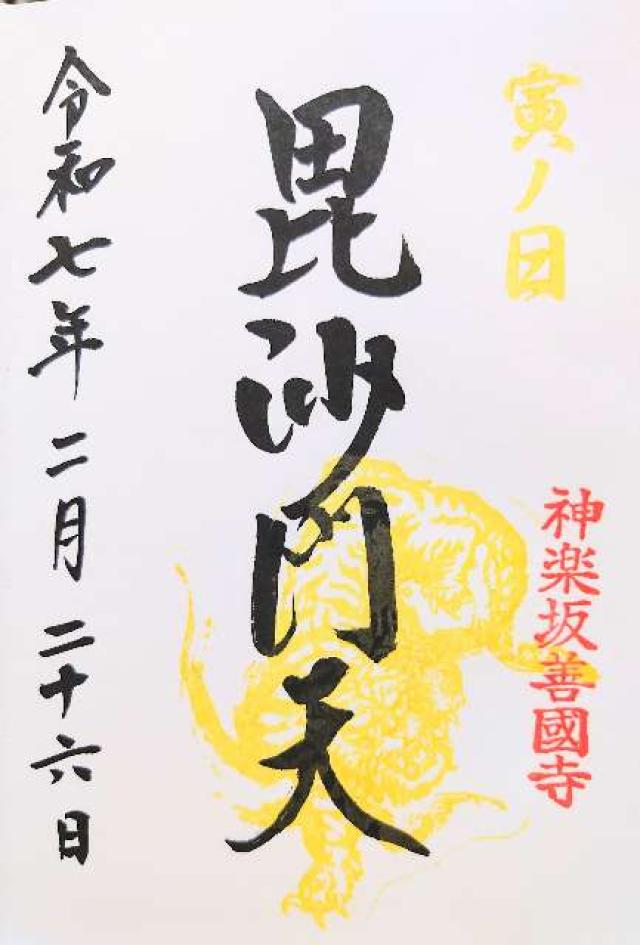 寅ノ日
神楽坂善國寺
毘沙門天
令和七年二月二十六日